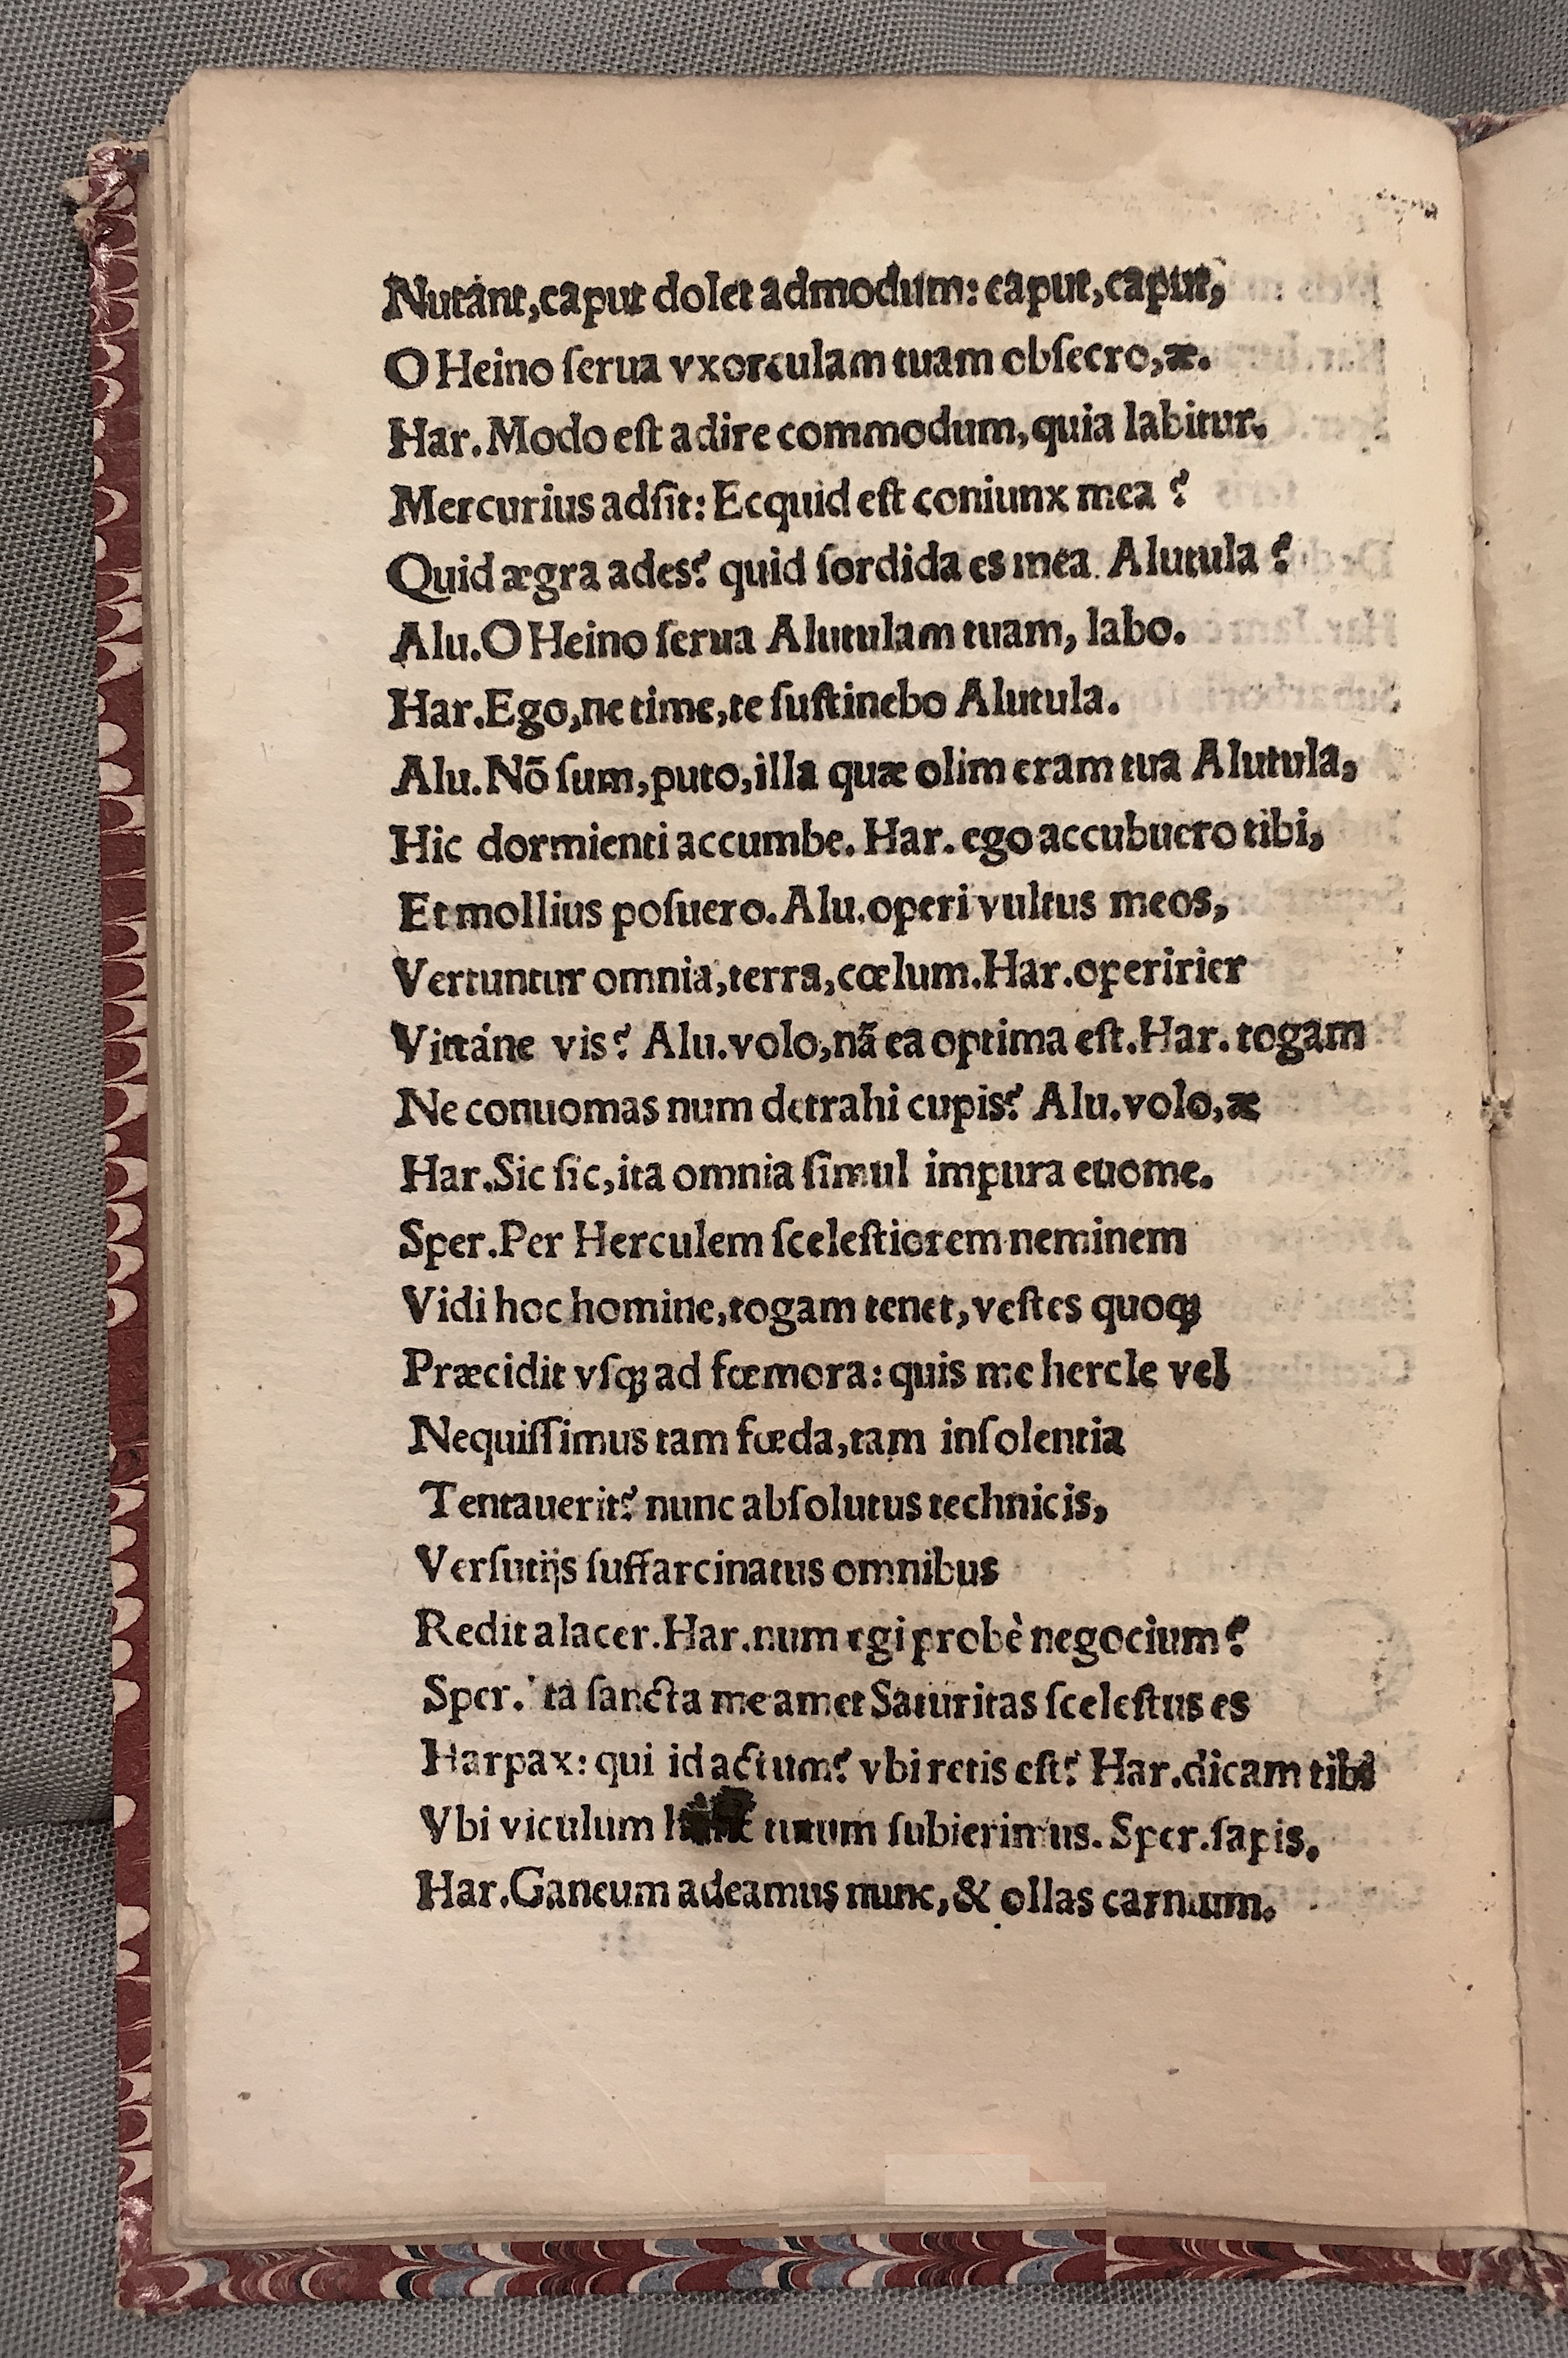 Nutánt,caput dolet admodum: caput,caput,
O Heino ſerua vxorculam tuam obſecro,æ.
Har.Modo eſt adire commodum,quia labitur.
Mercurius adſit: Ecquid eſt coniunx mea ?
Quid ægra ades? quid ſordida es mea Alutula ?
Alu.O Heino ſerua Alutulam tuam, labo.
Har.Ego,ne time,te ſuſtinebo Alutula.
Alu.Nõ ſum,puto,illa quæ olim eram tua Alutula,
Hic dormienti accumbe. Har. ego accubuero tibi,
Et mollius poſuero.Alu.operi vultus meos,
Vertuntur omnia,terra,cœlum.Har.operirier
Vittáne vis? Alu.volo,nã ea optima eſt.Har. togam
Ne conuomas num detrahi cupis? Alu.volo,æ
Har.Sic ſic,ita omnia ſimul impura euome.
Sper.Per Herculem ſceleſtiorem neminem
Vidi hoc homine,togam tenet,veſtes quoqꝫ
Præcidit vſqꝫ ad fœmora: quis me hercle vel
Nequiſſimus tam fœda,tam inſolentia
Tentauerit? nunc abſolutus technicis,
Verſutijs ſuffarcinatus omnibus
Redit alacer.Har.num egi probè negocium?
Sper. ta ſancta me amet Saturitas ſceleſtus es
Harpax: qui id actum? vbi retis eſt? Har.dicam tibi
Vbi viculum tutum ſubierimus. Sper.ſapis.
Har.Ganeum adeamus nunc,& ollas carnium.